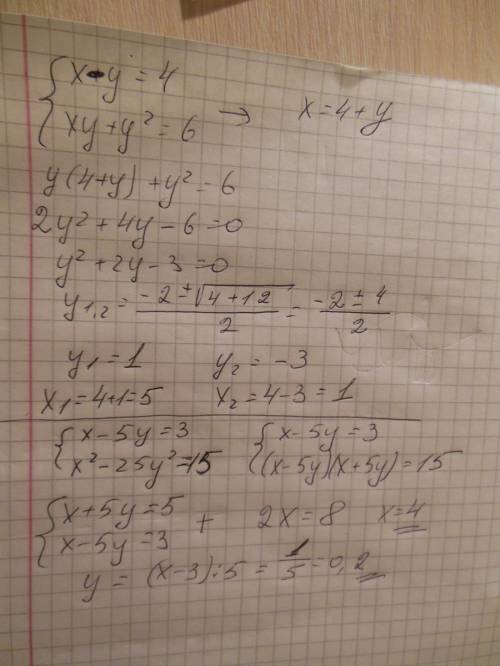 { x - y = 4
{ xy + y² = 6 → x = 4 + y
y(4+y) + y² = 6
2y² + 4y - 6 = 0
y² + 2y - 3 = 0
y₁,₂ = (-2 ± √(4+12))/2 = (-2 ± 4)/2
y₁ = 1 y₂ = -3
x₁ = 4+1 = 5 x₂ = 4-3 = 1
{ x - 5y = 3 { x - 5y = 3
{ x² - 25y² = 15 { (x-5y)(x+5y) = 15
{ x + 5y = 5
{ x - 5y = 3 + 2x = 8 x = 4
y = (x-3):5 = 1/5 = 0,2